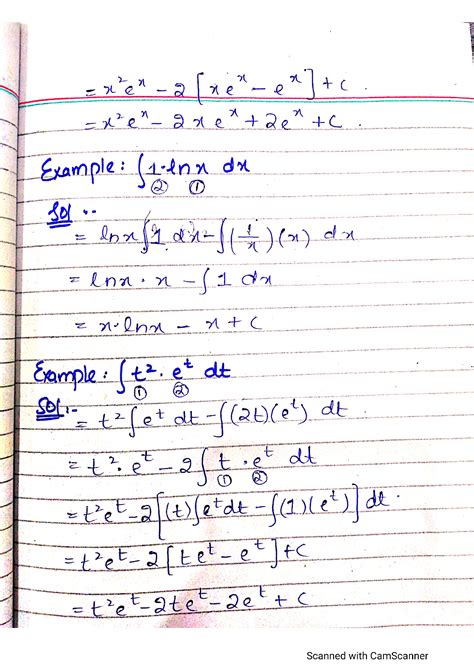 = x²eˣ - 2 [xeˣ - eˣ] + c
= x²eˣ - 2xeˣ + 2eˣ + c.
Example: ∫1·lnx dx
② ①
Sol :-
= lnx∫1 dx - ∫(1/x)(x) dx
= lnx·x - ∫1 dx
= x·lnx - x + c
Example: ∫t²·eᵗ dt
① ②
Sol:-
= t²∫eᵗ dt - ∫(2t)(eᵗ) dt
= t²·eᵗ - 2∫t·eᵗ dt
① ②
= t²eᵗ - 2[(t)∫eᵗdt - ∫(1)(eᵗ)]dt.
= t²eᵗ - 2[teᵗ - eᵗ] + c
= t²eᵗ - 2teᵗ - 2eᵗ + c
Scanned with CamScanner